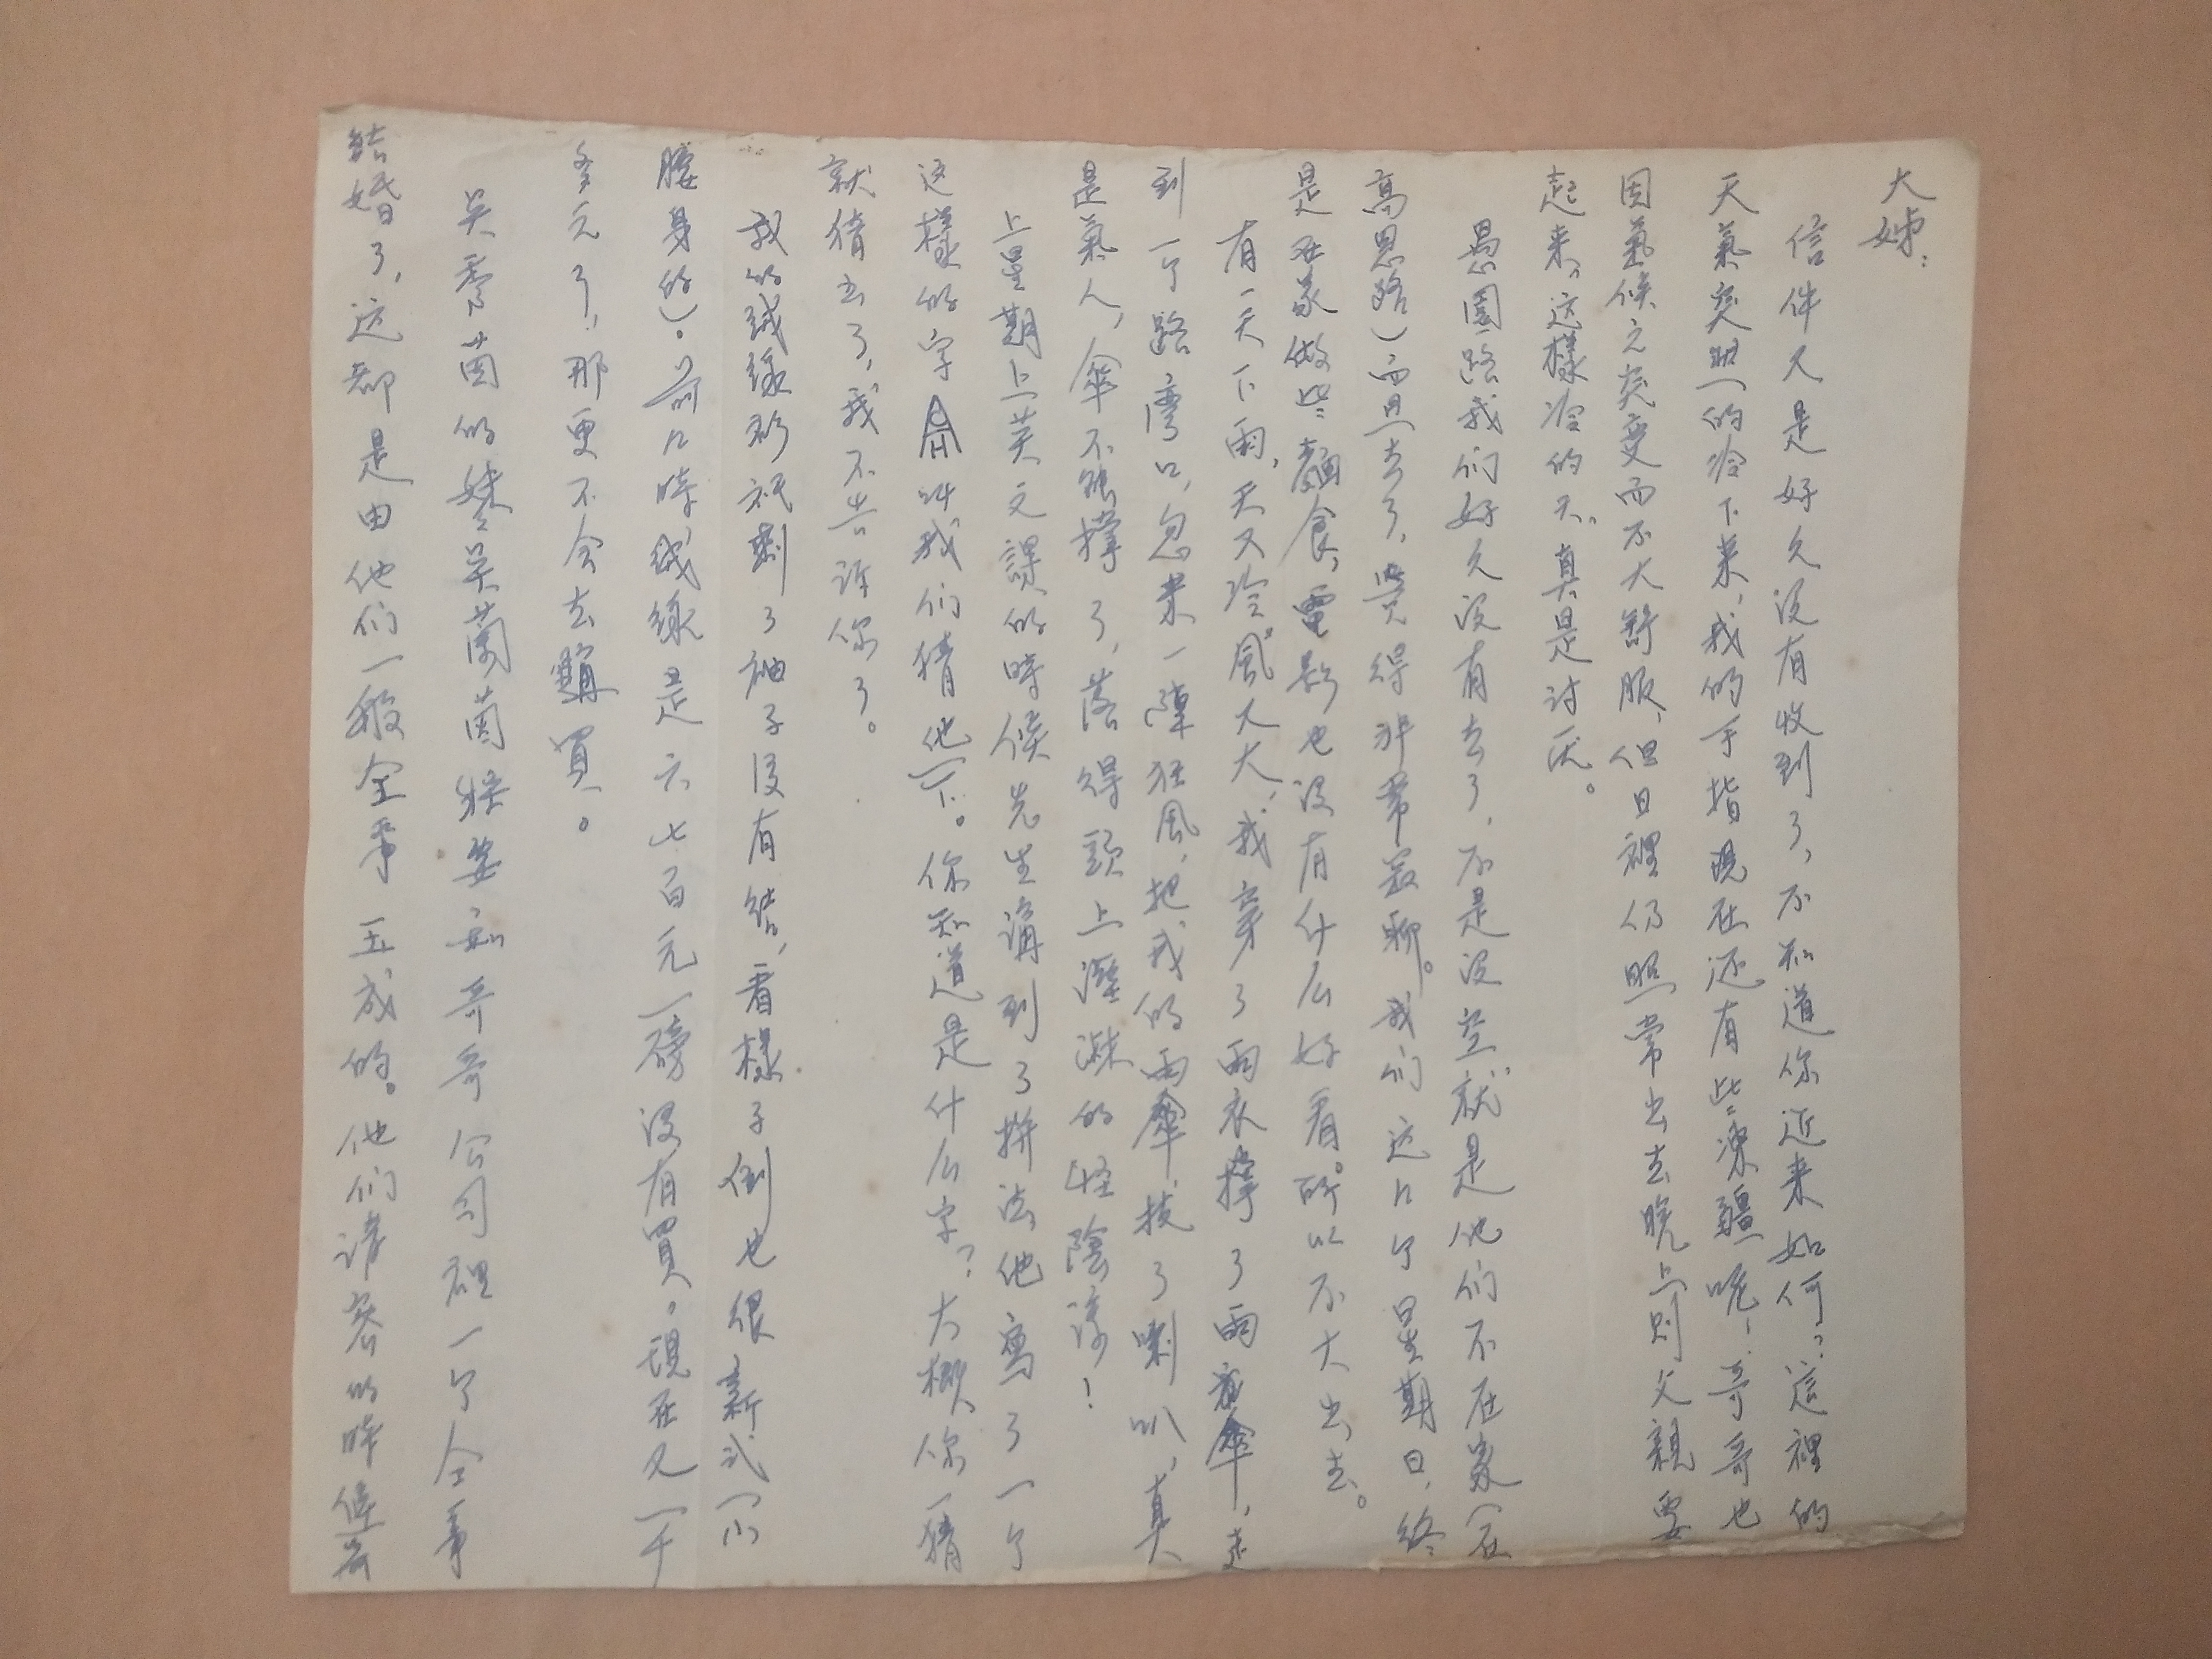 大姊：
信件又是好久没有收到了，不知道你近来如何？這裡的
天氣突然的冷下来，我的手指現在还有些凍疆呢！哥哥也
因氣候之突变而不大舒服，但日裡仍照常出去晚上则父親要
起来，这樣冷的天，真是讨厌。
愚園路我们好久没有去了，不是没空，就是他们不在家（在
高恩路）而且去了，覺得非常寂聊。我们这几个星期日，終
是在家做些麵食，電影也没有什么好看。所以不大出去。
有一天下雨，天又冷風又大，我穿了雨衣撑了雨傘，走
到一个路湾口，忽来一陣狂風，把我的雨傘，技了喇叭，真
是氣人，傘不能撑了，落得頭上溼淋的怪陰涼！
上星期上英文課的時候先生講到了拼法他寫了一个
这樣的字 叫我们猜他一下。你知道是什么字？大概你一猜
就猜出了，我不告诉你了。
我的絨線衫祇剩了袖子没有结，看樣子倒也很新式（小
腰身的）。前几時絨線是六七百元一磅没有買。現在又一千
多元了，那更不会去購買。
吴雪茵的妹妹吴蘭茵將要和哥哥公司裡一个仝事
结婚了，这都是由他们一般仝事玉成的。他们请客的時候